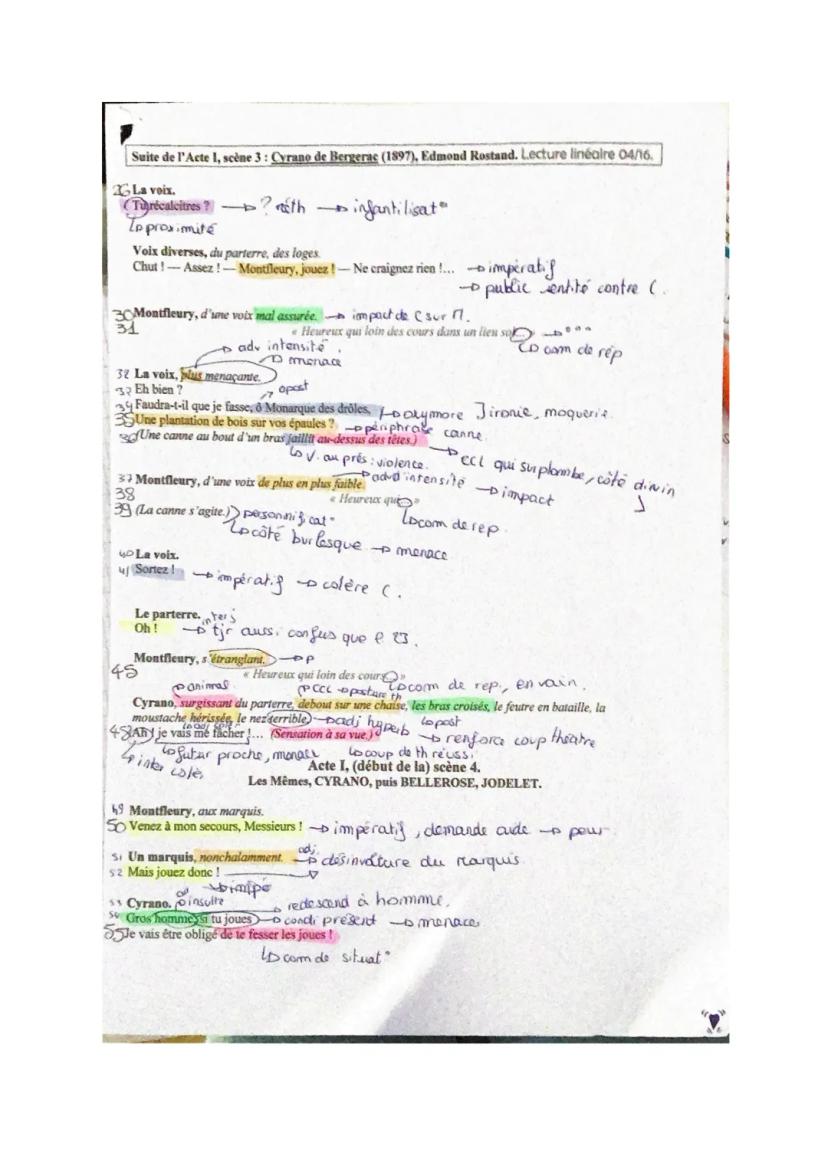 Suite de l'Acte I, scène 3 : Cyrano de Bergerac (1897), Edmond Rostand. Lecture linéaire 04/16.
26 La voix.
Tu récalcitres ? → ? réth → infantilisat°
↳ proximité
Voix diverses, du parterre, des loges.
Chut ! — Assez ! — Montfleury, jouez ! — Ne craignez rien !... → impératif
→ public entité contre C.
30 Montfleury, d'une voix mal assurée. → impact de C sur M.
31 « Heureux qui loin des cours dans un lieu sol → °°°
→ adv intensité → menace ↳ com de rép
32 La voix, plus menaçante.
33 Eh bien ? ↗ apost
34 Faudra-t-il que je fasse, ô Monarque des drôles, → oxymore ironie, moquerie.
35 Une plantation de bois sur vos épaules ? → périphrase canne.
36 (Une canne au bout d'un bras jaillit au-dessus des têtes.)
↳ V. au prés : violence. → CCL qui surplombe, côté divin
37 Montfleury, d'une voix de plus en plus faible. → adv d'intensité → impact
38 « Heureux qui » ↳ com de rep.
39 (La canne s'agite.) personnificat°
↳ côté burlesque → menace
40 La voix.
41 Sortez ! → impératif → colère C.
Le parterre. interj
Oh ! → tjr aussi confus que l 23.
Montfleury, s'étranglant. → P
45 « Heureux qui loin des cours » ↳ com de rep, en vain.
→ animal → CCL → posture th
Cyrano, surgissant du parterre, debout sur une chaise, les bras croisés, le feutre en bataille, la
moustache hérissée, le nez terrible, → adj hyperb ↳ post
48 Ah ! je vais me fâcher !... (Sensation à sa vue.) → renforce coup théâtre
↳ inter colè ↳ futur proche, menace ↳ coup de th réussi
Acte I, (début de la) scène 4.
Les Mêmes, CYRANO, puis BELLEROSE, JODELET.
49 Montfleury, aux marquis.
50 Venez à mon secours, Messieurs ! → impératif, demande aide → peur
51 Un marquis, nonchalamment. adj. → désinvolture du marquis
52 Mais jouez donc !
→ impé
53 Cyrano. → insulte → redescend à homme.
54 Gros homme, si tu joues → condi présent → menace
55 Je vais être obligé de te fesser les joues !
↳ com de situat°